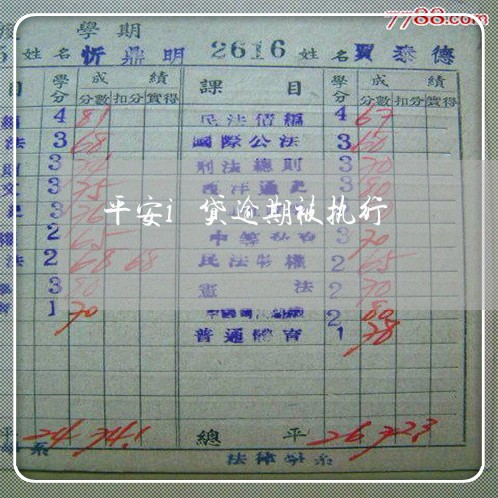 7788.com
學期
姓名 忻鼎明 2616 姓名 賈泰德
目 學分 成績 課目 學分 成績
分數 扣分 實得 分數 扣分 實得
4 81 民法債編 4 67
法 3 68 國際公法 3 60
3 刑法總則 3 70
3 75 西洋通史 3 80
3 76 3
2 65 3 70
法 2 68 68 民法物權 2 65
3 80 憲法 2 70
1 70 2 80
普通體育 1 78
平安i 贷逾期被执行
平 24 74.1 總平 26 72.3
系 法律學系